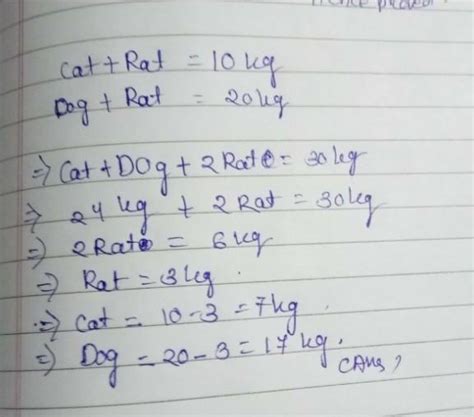 Cat + Rat = 10 kg
Dog + Rat = 20 kg
⇒ Cat + Dog + 2 Rat = 30 kg
⇒ 24 kg + 2 Rat = 30 kg
⇒ 2 Rat = 6 kg
⇒ Rat = 3 kg.
⇒ Cat = 10 - 3 = 7 kg.
⇒ Dog = 20 - 3 = 17 kg.
(Ans)